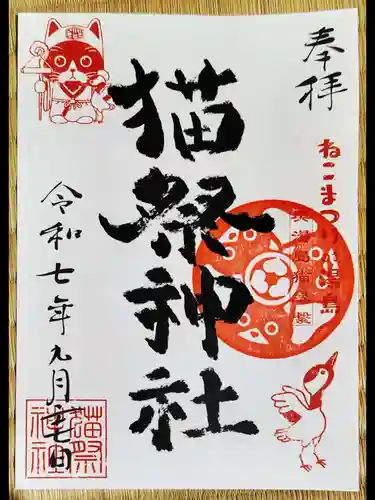 奉拝
ねこまつり 湯島
猫祭神社
令和七年九月
猫祭
神社